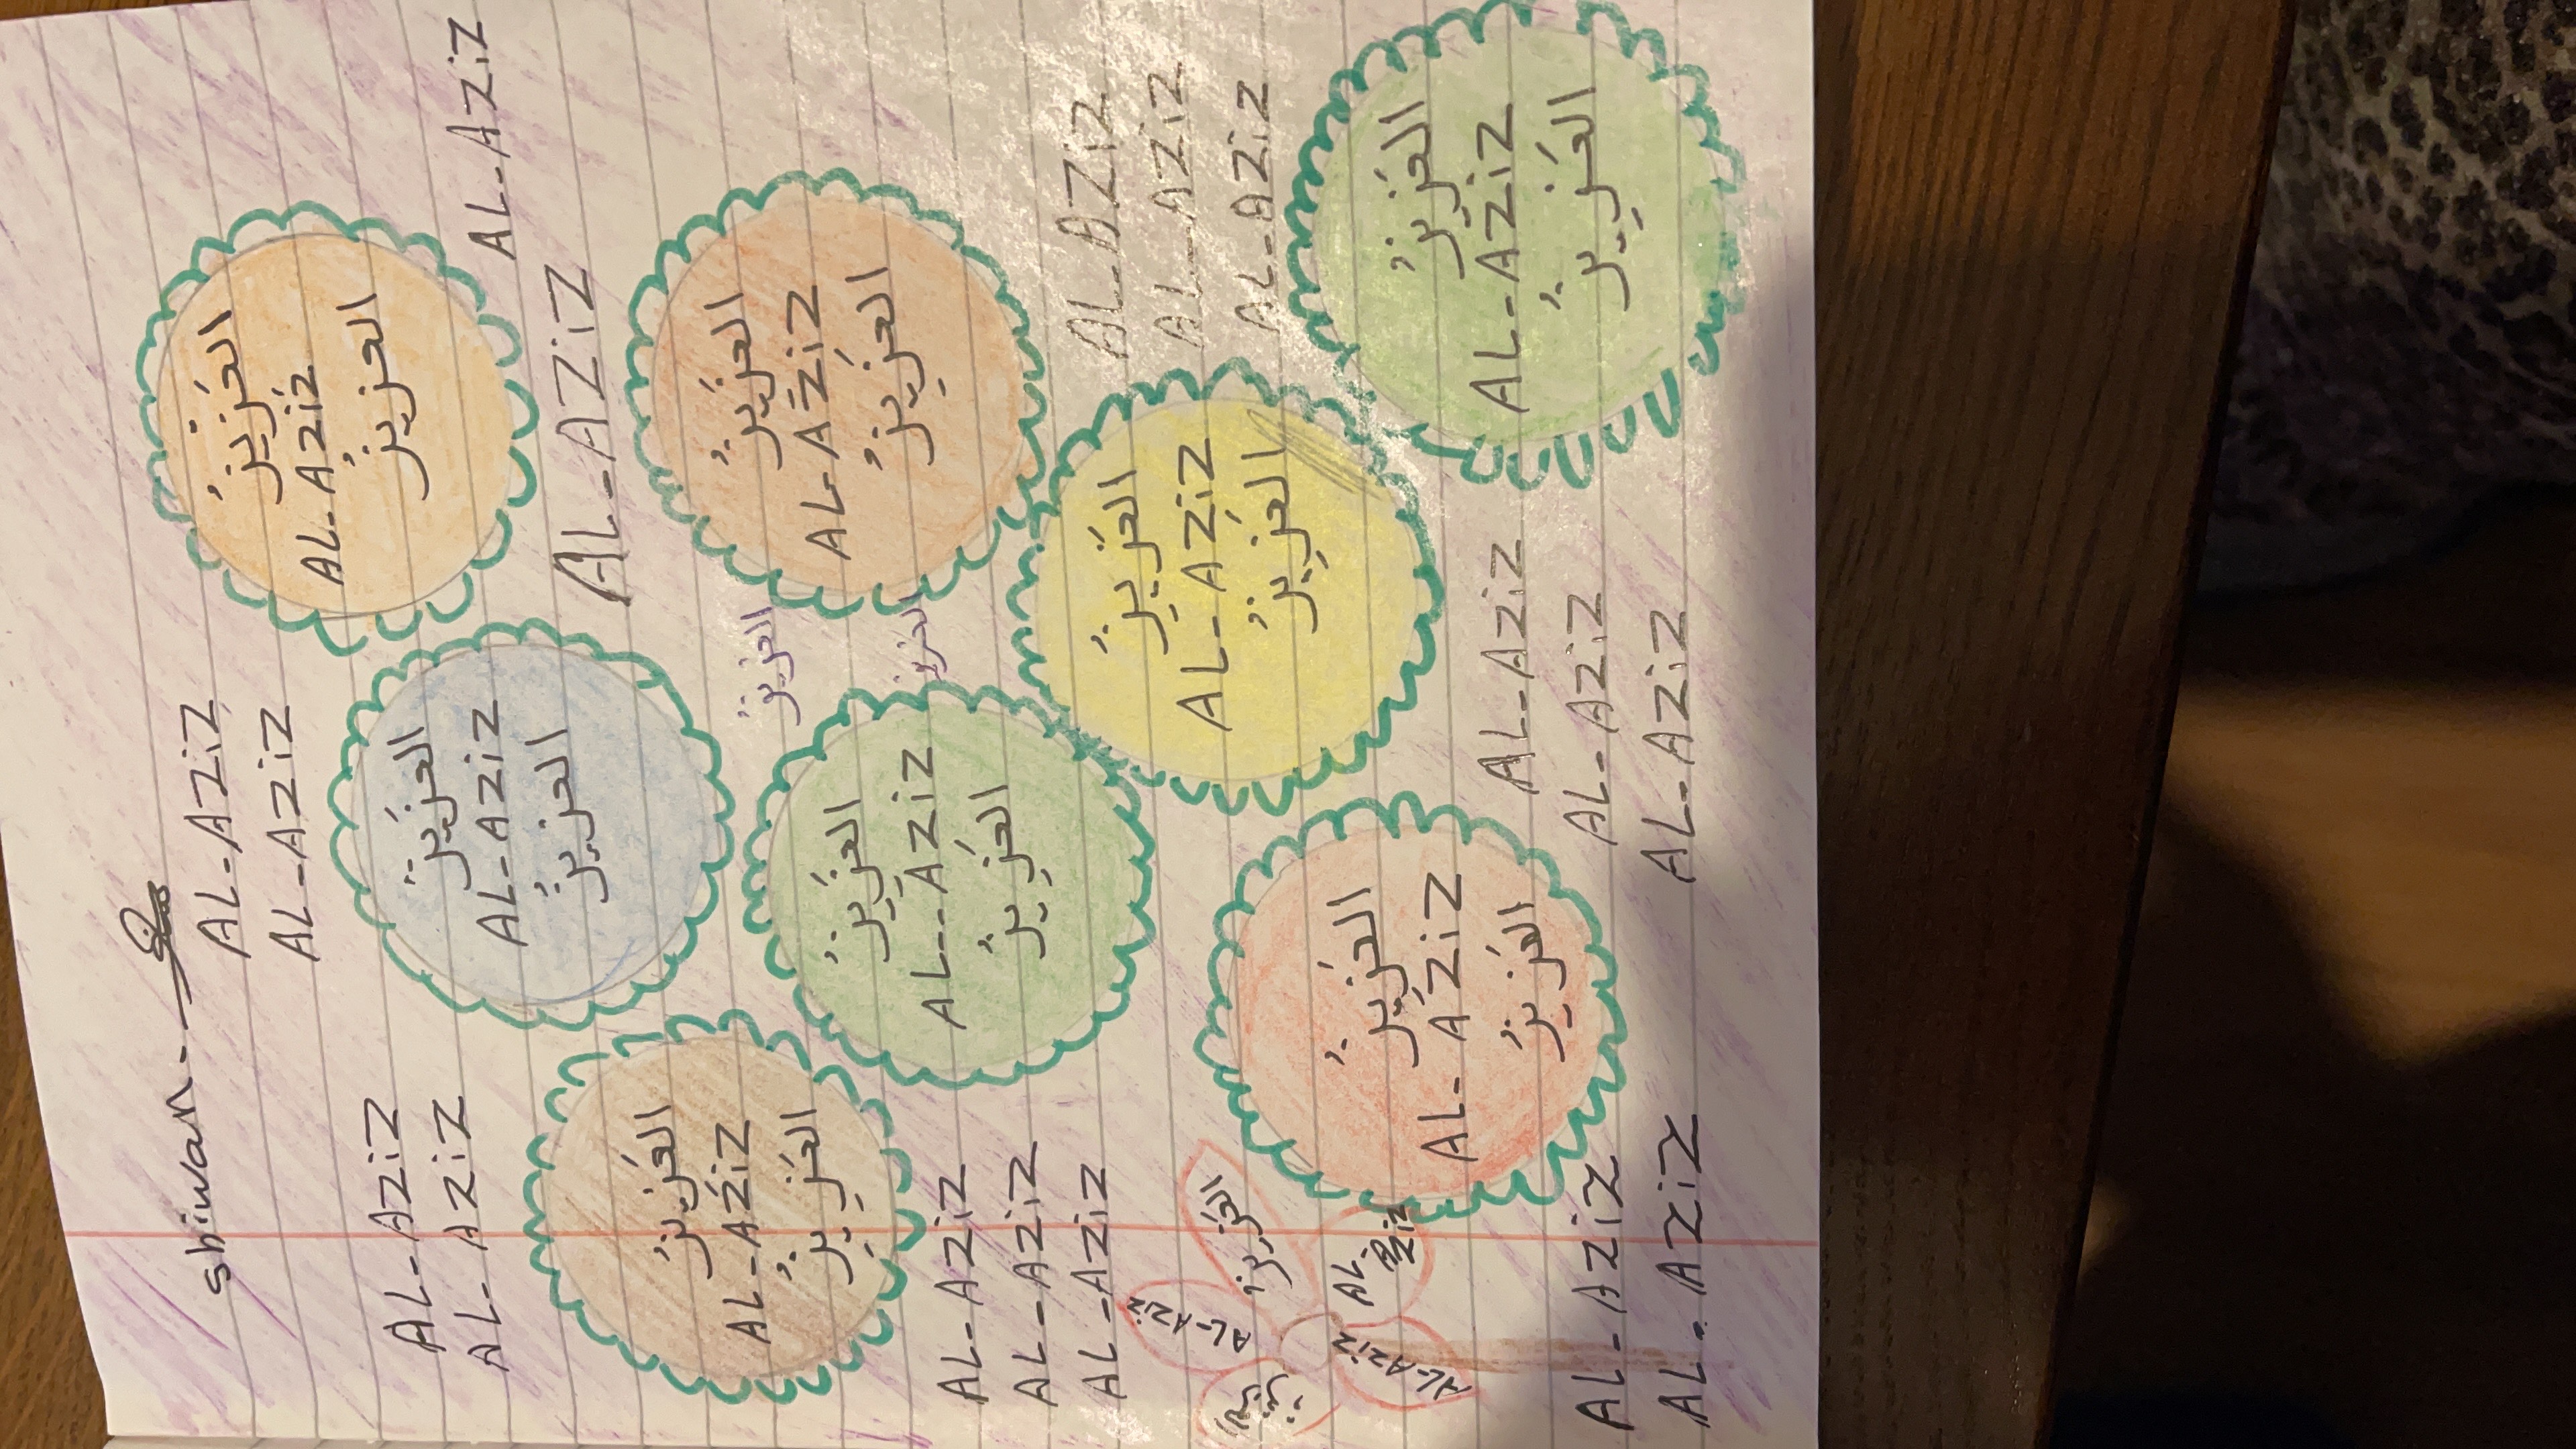 shiwan
AL-AZiZ
AL-AZiZ
AL-AZiZ
AL-AZiZ
العَزِيزُ
AL-AZiZ
العزيزُ
AL-AZiZ
العَزِيزُ
AL-AZiZ
العزيزُ
AL-AZiZ
العَزِيزُ
AL-AZiZ
العَزِيزُ
العَزِيزُ
AL-AZiZ
العَزِيزُ
العزيزُ
العزيز
العَزِيزُ
AL-AZiZ
العَزِيزُ
AL-AZiZ
AL-AZiZ
AL-AZiZ
AL-AZiZ
AL-AZiZ
AL-AZiZ
العَزِيزُ
AL-AZiZ
العَزِيزُ
العَزِيزُ
AL-AZiZ
العَزِيزُ
العَزِيزُ
AL-AZiZ
العَزِيزُ
AL-
AZiZ
العزيز
AL-
AL-AZiZ
AL-AZiZ
AL-AZiZ
AL-AZiZ
AL-AZiZ
AL-AZiZ